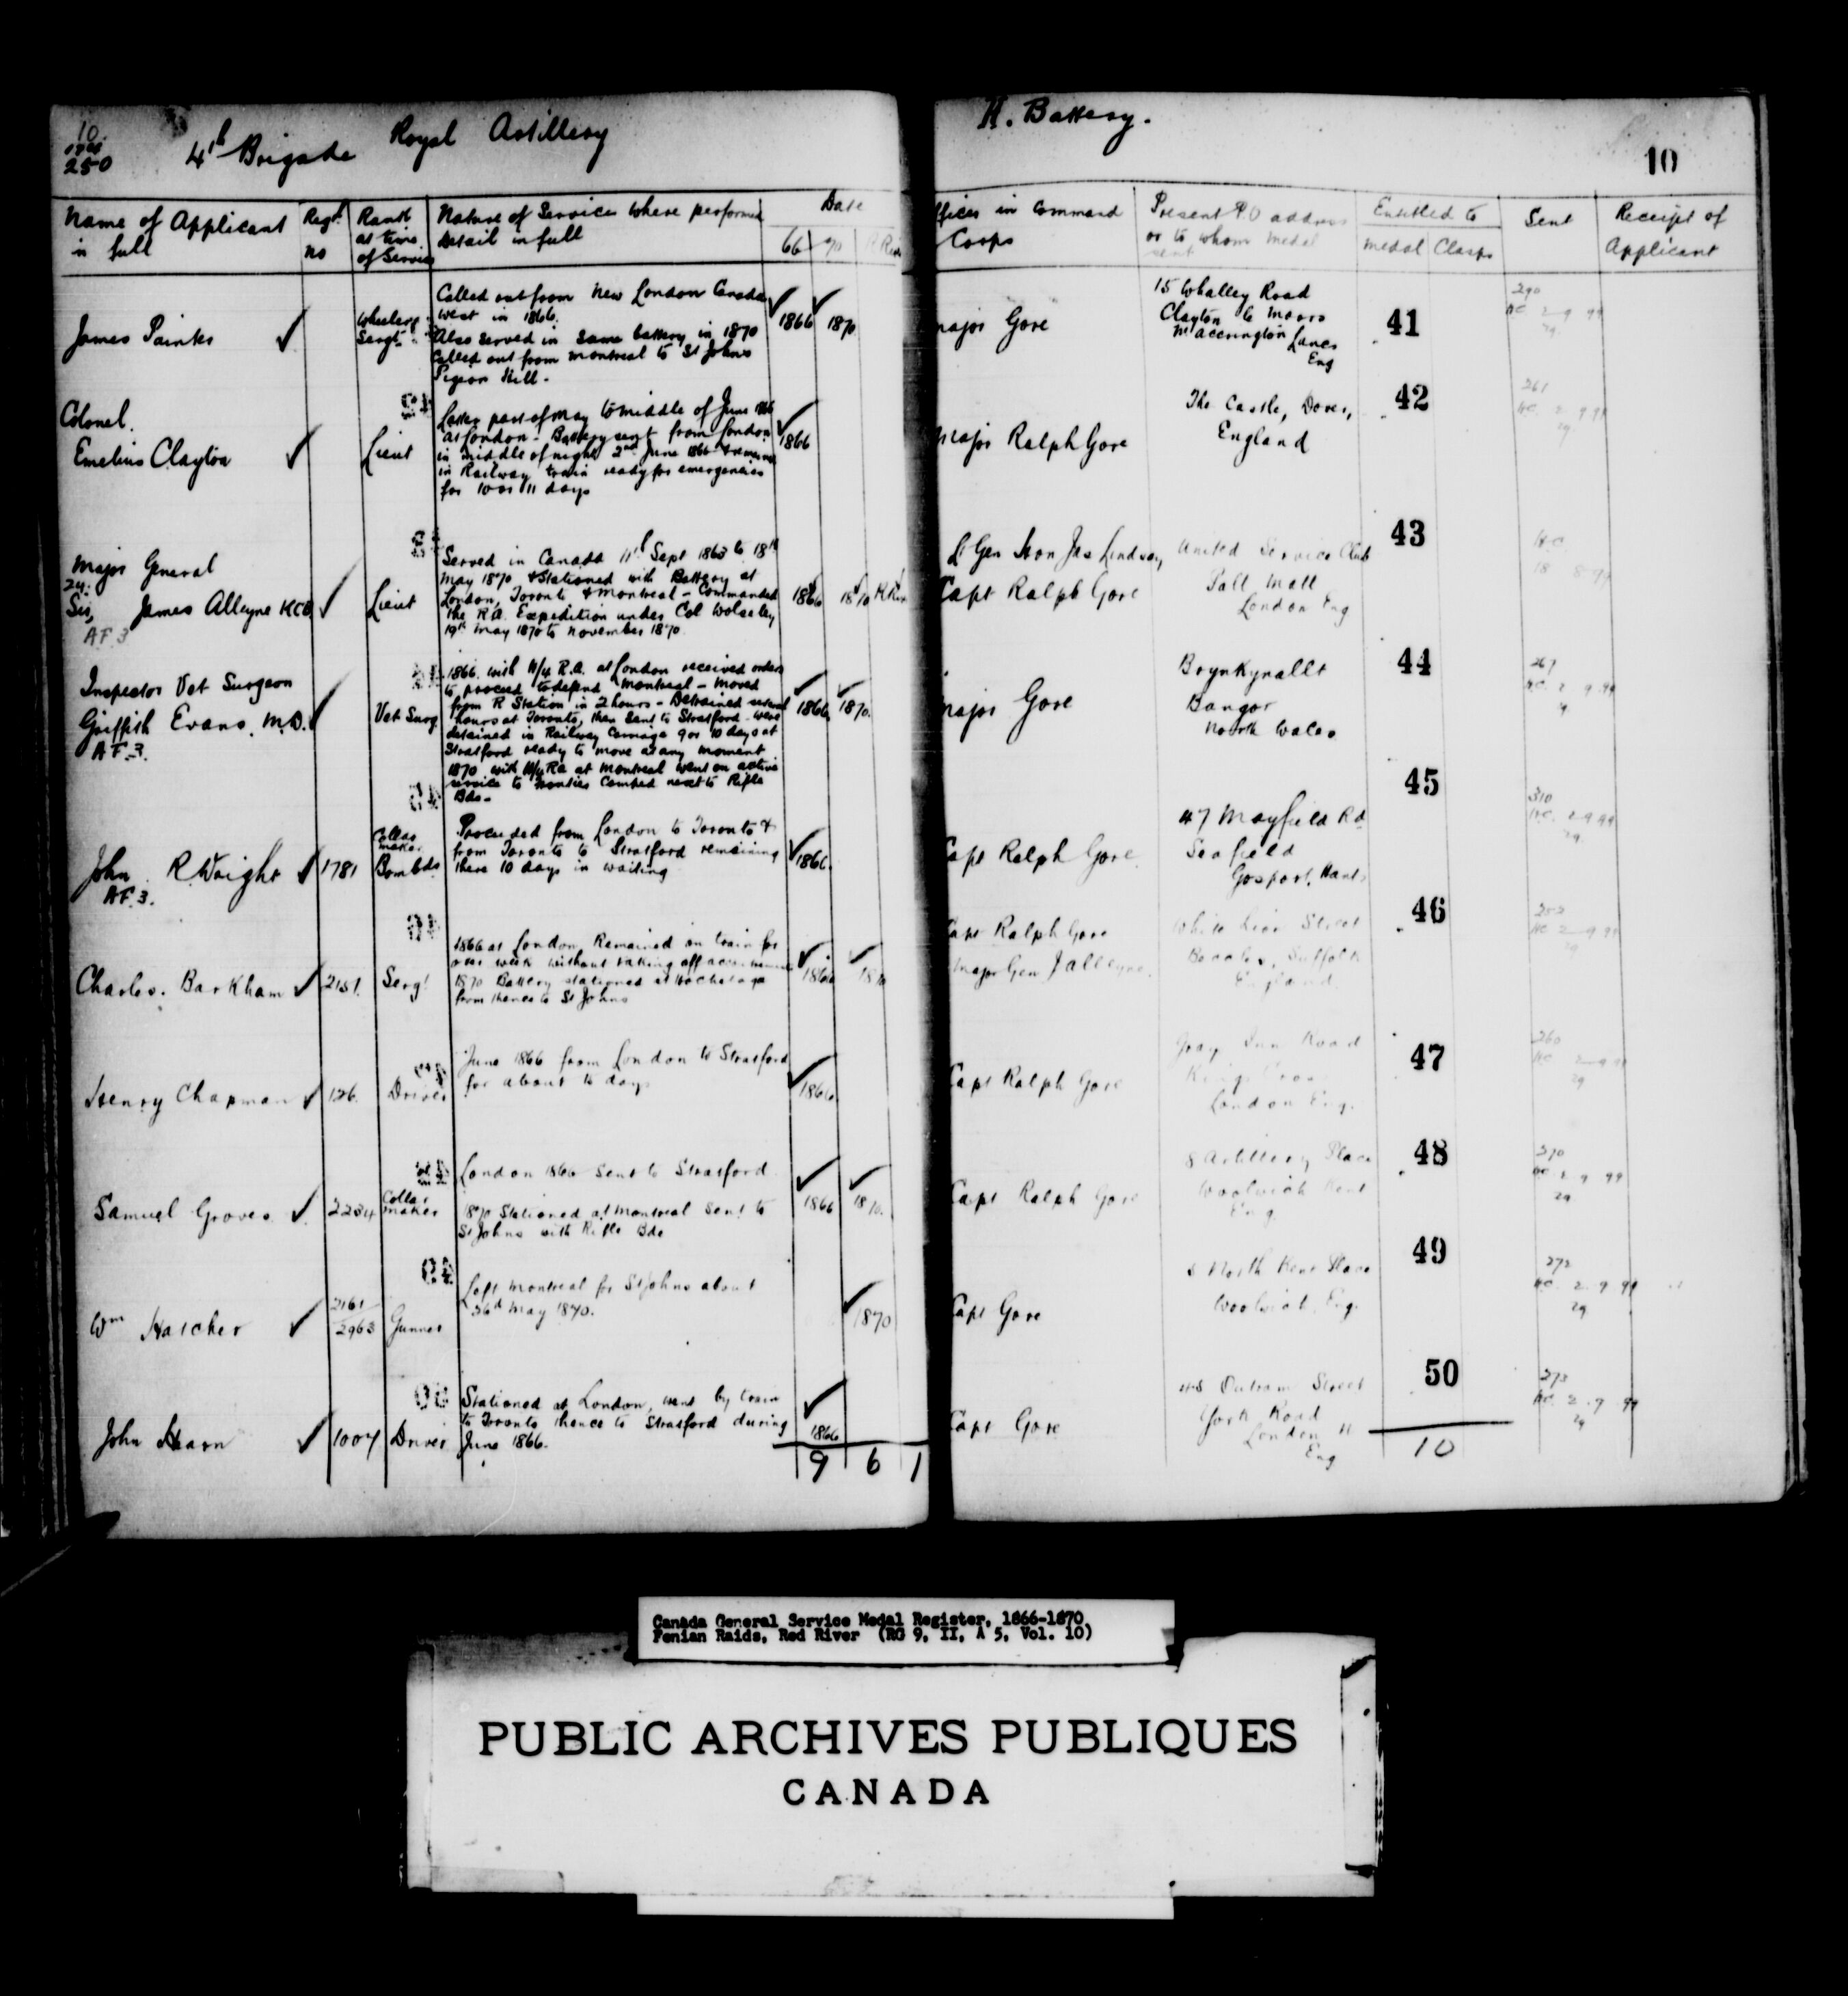 10
250
4th Brigade Royal Artillery
H. Battery.
10
Name of Applicant in full
Regtl no
Rank at time of Service
Nature of Service where performed Detail in full
Date
66 70 R Riv
Officer in Command Corps
Present P.O address or to whom medal sent
Entitled to
Medal Clasps
Sent
Receipt of Applicant
James Painter
Wheeler Sergt
Called out from New London Canada
West in 1866.
Also served in same battery in 1870
Called out from Montreal to St Johns
Pigeon Hill.
1866 1870
Major Gore
15 Whalley Road
Clayton le Moors
Nr Accrington Lancs
Eng
41
290
HC 2 9 99
29
Colonel
Emelius Clayton
Lieut
Latter part of May to middle of June 1866
at London - Battery sent from London
in middle of night 2nd June 1866 & remained
in Railway train ready for emergencies
for 10 or 11 days
1866
Major Ralph Gore
The Castle, Dover,
England
42
261
HC 2 9 99
29
Major General
Sir, James Alleyne KCB
AF 3
Lieut
Served in Canada 11th Sept 1863 to 18th
May 1870 & Stationed with Battery at
London, Toronto & Montreal - Commanded
the R.A. Expedition under Col Wolseley
19th May 1870 to November 1870.
1866 1870 R Riv
Lt Gen Hon Jas Lindsay
Capt Ralph Gore
United Service Club
Pall Mall
London Eng
43
HC
18 8 99
Inspector Vet Surgeon
Griffith Evans. M.D.
AF 3.
Vet Surg
1866 with H/4 R.A. at London received orders
to proceed to defend Montreal - moved
from R Station in 2 hours - Detrained several
hours at Toronto, then sent to Stratford - were
detained in Railway Carriage 9 or 10 days at
Stratford ready to move at any moment
1870 with H/4 RA at Montreal went on active
service to frontier Camped next to Rifle
Bde -
1866 1870.
Major Gore
Brynkynallt
Bangor
North Wales
44
267
HC 2 9 99
John R. Wright
AF. 3.
1781
Collar maker
Bombdr
Proceeded from London to Toronto &
from Toronto to Stratford remaining
there 10 days in waiting
1866.
Capt Ralph Gore
47 Mayfield Rd
Seafield
Gosport, Hants
45
310
HC. 2 9 99
29
Charles. Barkham
2151.
Sergt
1866 at London. Remained on train for
over week without taking off accoutrements
1870 Battery stationed at Hochelaga
from thence to St Johns
1866 1870
Capt Ralph Gore
Major Gen J Alleyne.
White Lion Street
Beccles, Suffolk
England
46
HC 2 9 99
29
Henry Chapman
126.
Driver
June 1866 from London to Stratford
for about 10 days
1866
Capt Ralph Gore
Gray Inn Road
Kings Cross
London Eng.
47
260
HC 2 9 99
29
Samuel Groves
2234
Collar maker
London 1866 sent to Stratford
1870 Stationed at Montreal sent to
St Johns with Rifle Bde
1866 1870.
Capt Ralph Gore
8 Artillery Place
Woolwich Kent
Eng
48
270
HC 2 9 99
29
Wm Hatcher
2161
2963
Gunner
Left Montreal for St Johns about
26th May 1870.
1870
Capt Gore
North Kent Place
Woolwich, Eng.
49
272
HC. 2. 9 99
29
John Hearn
1007
Driver
Stationed at London, went by train
to Toronto thence to Stratford during
June 1866.
1866
Capt Gore
Outram Street
York Road
London N
Eng
50
273
HC. 2. 9 99
29
9 6 1
10
Canada General Service Medal Register, 1866-1870
Fenian Raids, Red River (RG 9, II, A 5, Vol. 10)
PUBLIC ARCHIVES PUBLIQUES
CANADA